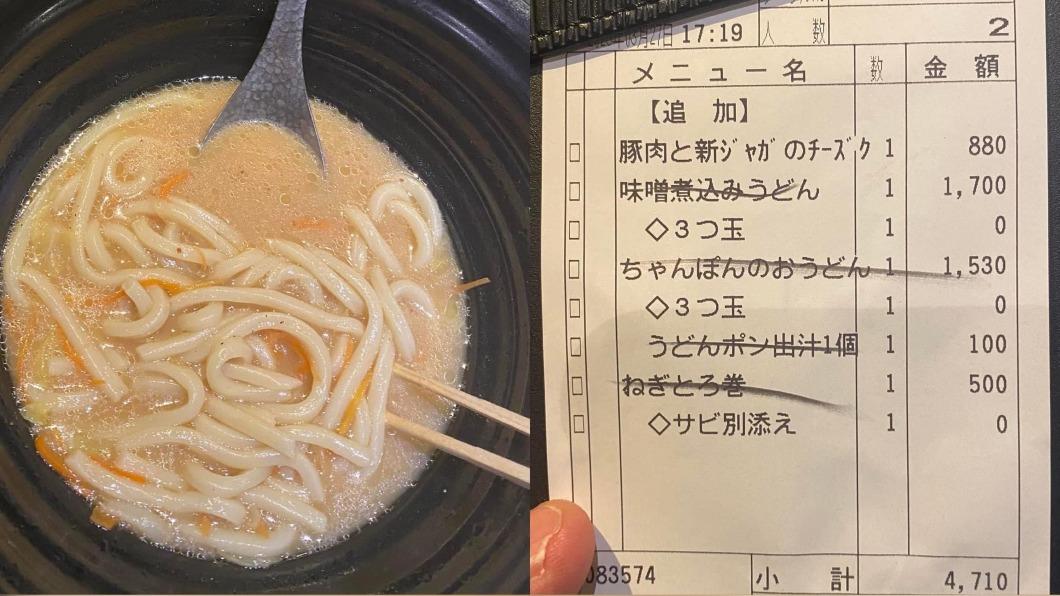 17:19 人 数 2
メニュー名 数 金 額
【追 加】
豚肉と新ｼﾞｬｶﾞのﾁｰｽﾞｸ 1 880
味噌煮込みうどん 1 1,700
◇３つ玉 1 0
ちゃんぽんのおうどん 1 1,530
◇３つ玉 1 0
うどんポン出汁1個 1 100
ねぎとろ巻 1 500
◇サビ別添え 1 0
083574 小 計 4,710